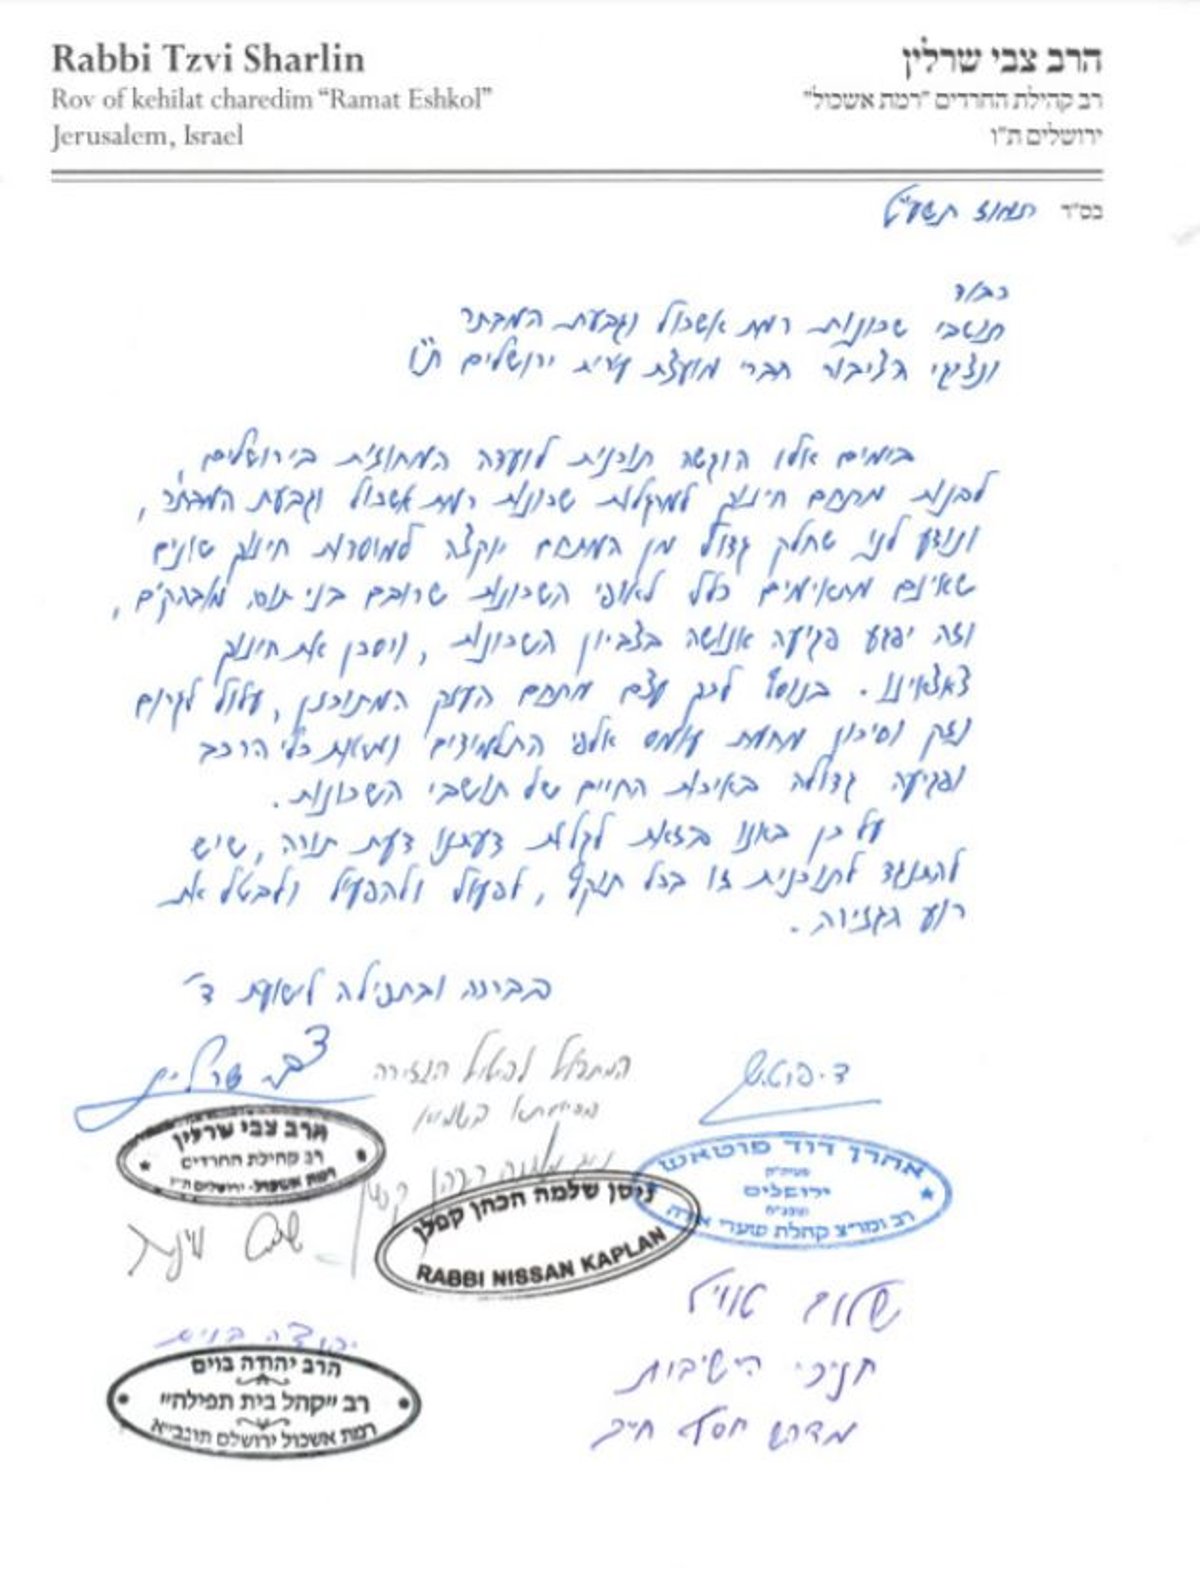 Rabbi Tzvi Sharlin
Rov of kehilat charedim “Ramat Eshkol”
Jerusalem, Israel
הרב צבי שרלין
רב קהילת החרדים "רמת אשכול"
ירושלים ת"ו
בס"ד תמוז תשע"ט
כבוד
תושבי שכונות רמת אשכול וגבעת המבתר
ונציגי הציבור חברי מועצת עירית ירושלים ת"ו
בימים אלו הוגשה תוכנית לועדה המחוזית בירושלים,
לבנות מתחם חינוך למרגלות שכונות רמת אשכול וגבעת המבתר,
ונודע לנו שחלק גדול מן המתחם יוקצה למוסדות חינוך שונים
שאינם מתאימים כלל לאופי השכונות שרובם בני תורה מובהקים,
וזה יפגע פגיעה אנושה בצביון השכונות, ויסכן את חינוך
צאצאינו. בנוסף לכך עצם מתחם הענק המתוכנן, עלול לגרום
נזק וסיכון מחמת עומס אלפי התלמידים ומאות כלי הרכב
ופגיעה גדולה באיכות החיים של תושבי השכונות.
על כן באנו בזאת לגלות דעתנו דעת תורה, שיש
להתנגד לתוכנית זו בכל תוקף, לפעול ולהפעיל ולבטל את
רוע הגזירה.
בברכה ובתפילה לישועת ד'
צבי שרלין
המתפלל לביטול הגזירה
בסייעתא דשמיא
ד. פוטש
הרב צבי שרלין
רב קהילת החרדים
רמת אשכול - ירושלים ת"ו
ניסן שלמה הכהן קפלן
RABBI NISSAN KAPLAN
אהרן דוד פוטאש
ירושלים
רב ומו"צ קהלת שערי
יהודה בוים
הרב יהודה בוים
רב "קהל בית תפילה"
רמת אשכול ירושלם תובב"א
חניכי הישיבות
מדרש יוסף חיים